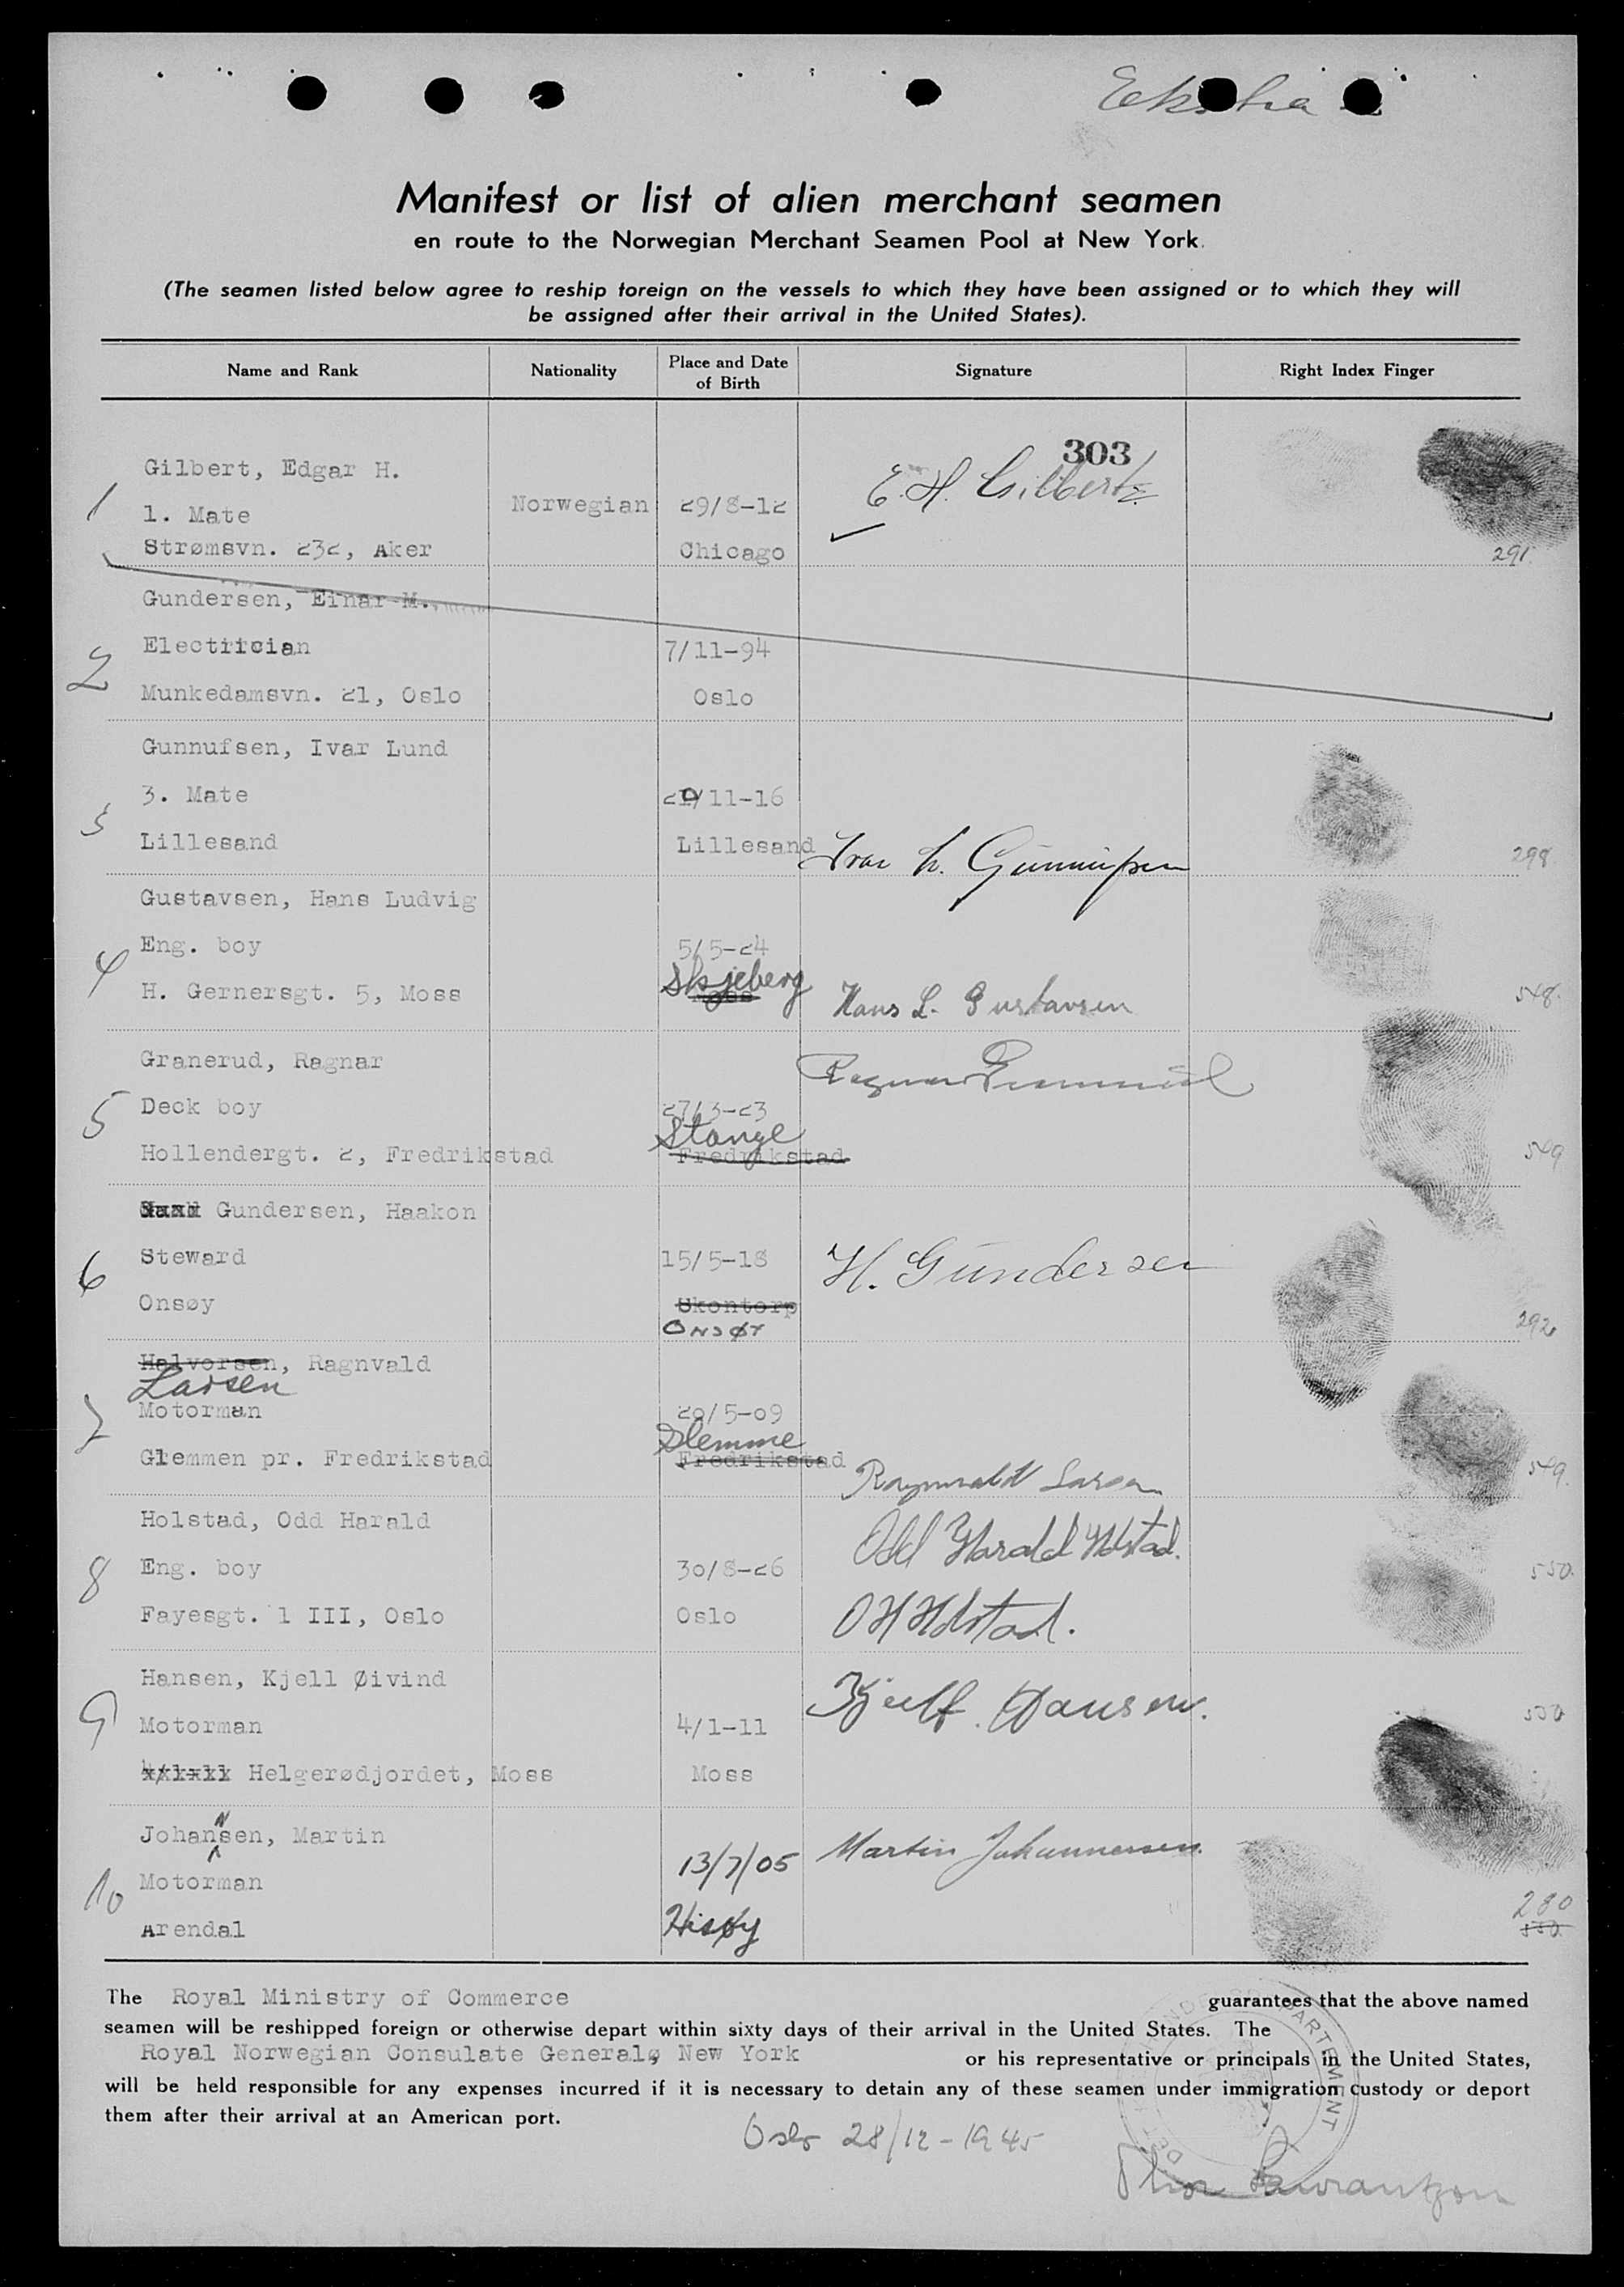 Ekstra
Manifest or list of alien merchant seamen
en route to the Norwegian Merchant Seamen Pool at New York.
(The seamen listed below agree to reship foreign on the vessels to which they have been assigned or to which they will
be assigned after their arrival in the United States).
Name and Rank Nationality Place and Date of Birth Signature Right Index Finger
303
Gilbert, Edgar H. E. H. Gilbert
1 1. Mate Norwegian 29/8-12
Strømsvn. 232, Aker Chicago 291
Gundersen, Einar M.
2 Electrician 7/11-94
Munkedamsvn. 21, Oslo Oslo
Gunnufsen, Ivar Lund
3 3. Mate 20/11-16
Lillesand Lillesand Ivar L. Gunnufsen 298
Gustavsen, Hans Ludvig
4 Eng. boy 5/5-24
H. Gernersgt. 5, Moss Skjeberg Moss Hans L. Gustavsen 548.
Granerud, Ragnar Ragnar Granerud
5 Deck boy 27/3-23
Stange
Hollendergt. 2, Fredrikstad Fredrikstad 549
Gundersen, Haakon
6 Steward 15/5-18 H. Gundersen
Onsøy Skontorp
ONSØY 292
Halvorsen, Ragnvald
Larsen
7 Motorman 20/5-09
Glemme
Glemmen pr. Fredrikstad Fredrikstad Ragnvald Larsen 549.
Holstad, Odd Harald Odd Harald Holstad.
8 Eng. boy 30/8-26 550.
Fayesgt. 1 III, Oslo Oslo O H Holstad.
Hansen, Kjell Øivind Kjell Hansen.
9 Motorman 4/1-11 550
4/1-11 Helgerødjordet, Moss Moss
N
Johansen, Martin 13/7/05 Martin Johannessen.
10 Motorman 280
Arendal Hisøy 550.
The Royal Ministry of Commerce guarantees that the above named
seamen will be reshipped foreign or otherwise depart within sixty days of their arrival in the United States. The
Royal Norwegian Consulate General, New York or his representative or principals in the United States,
will be held responsible for any expenses incurred if it is necessary to detain any of these seamen under immigration custody or deport
them after their arrival at an American port.
Oslo 28/12-1945
Thor Lawrantzon